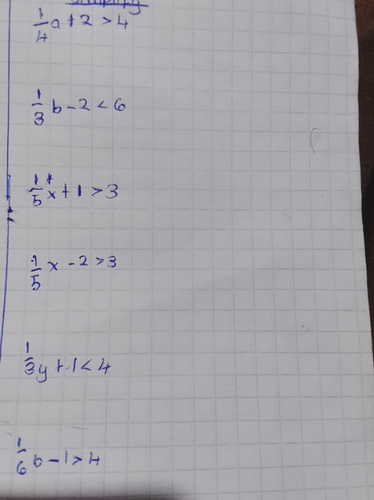 Simplify
1/4 a + 2 > 4
1/3 b - 2 < 6
1/5 x + 1 > 3
1/5 x - 2 > 3
1/3 y + 1 < 4
1/6 b - 1 > 4